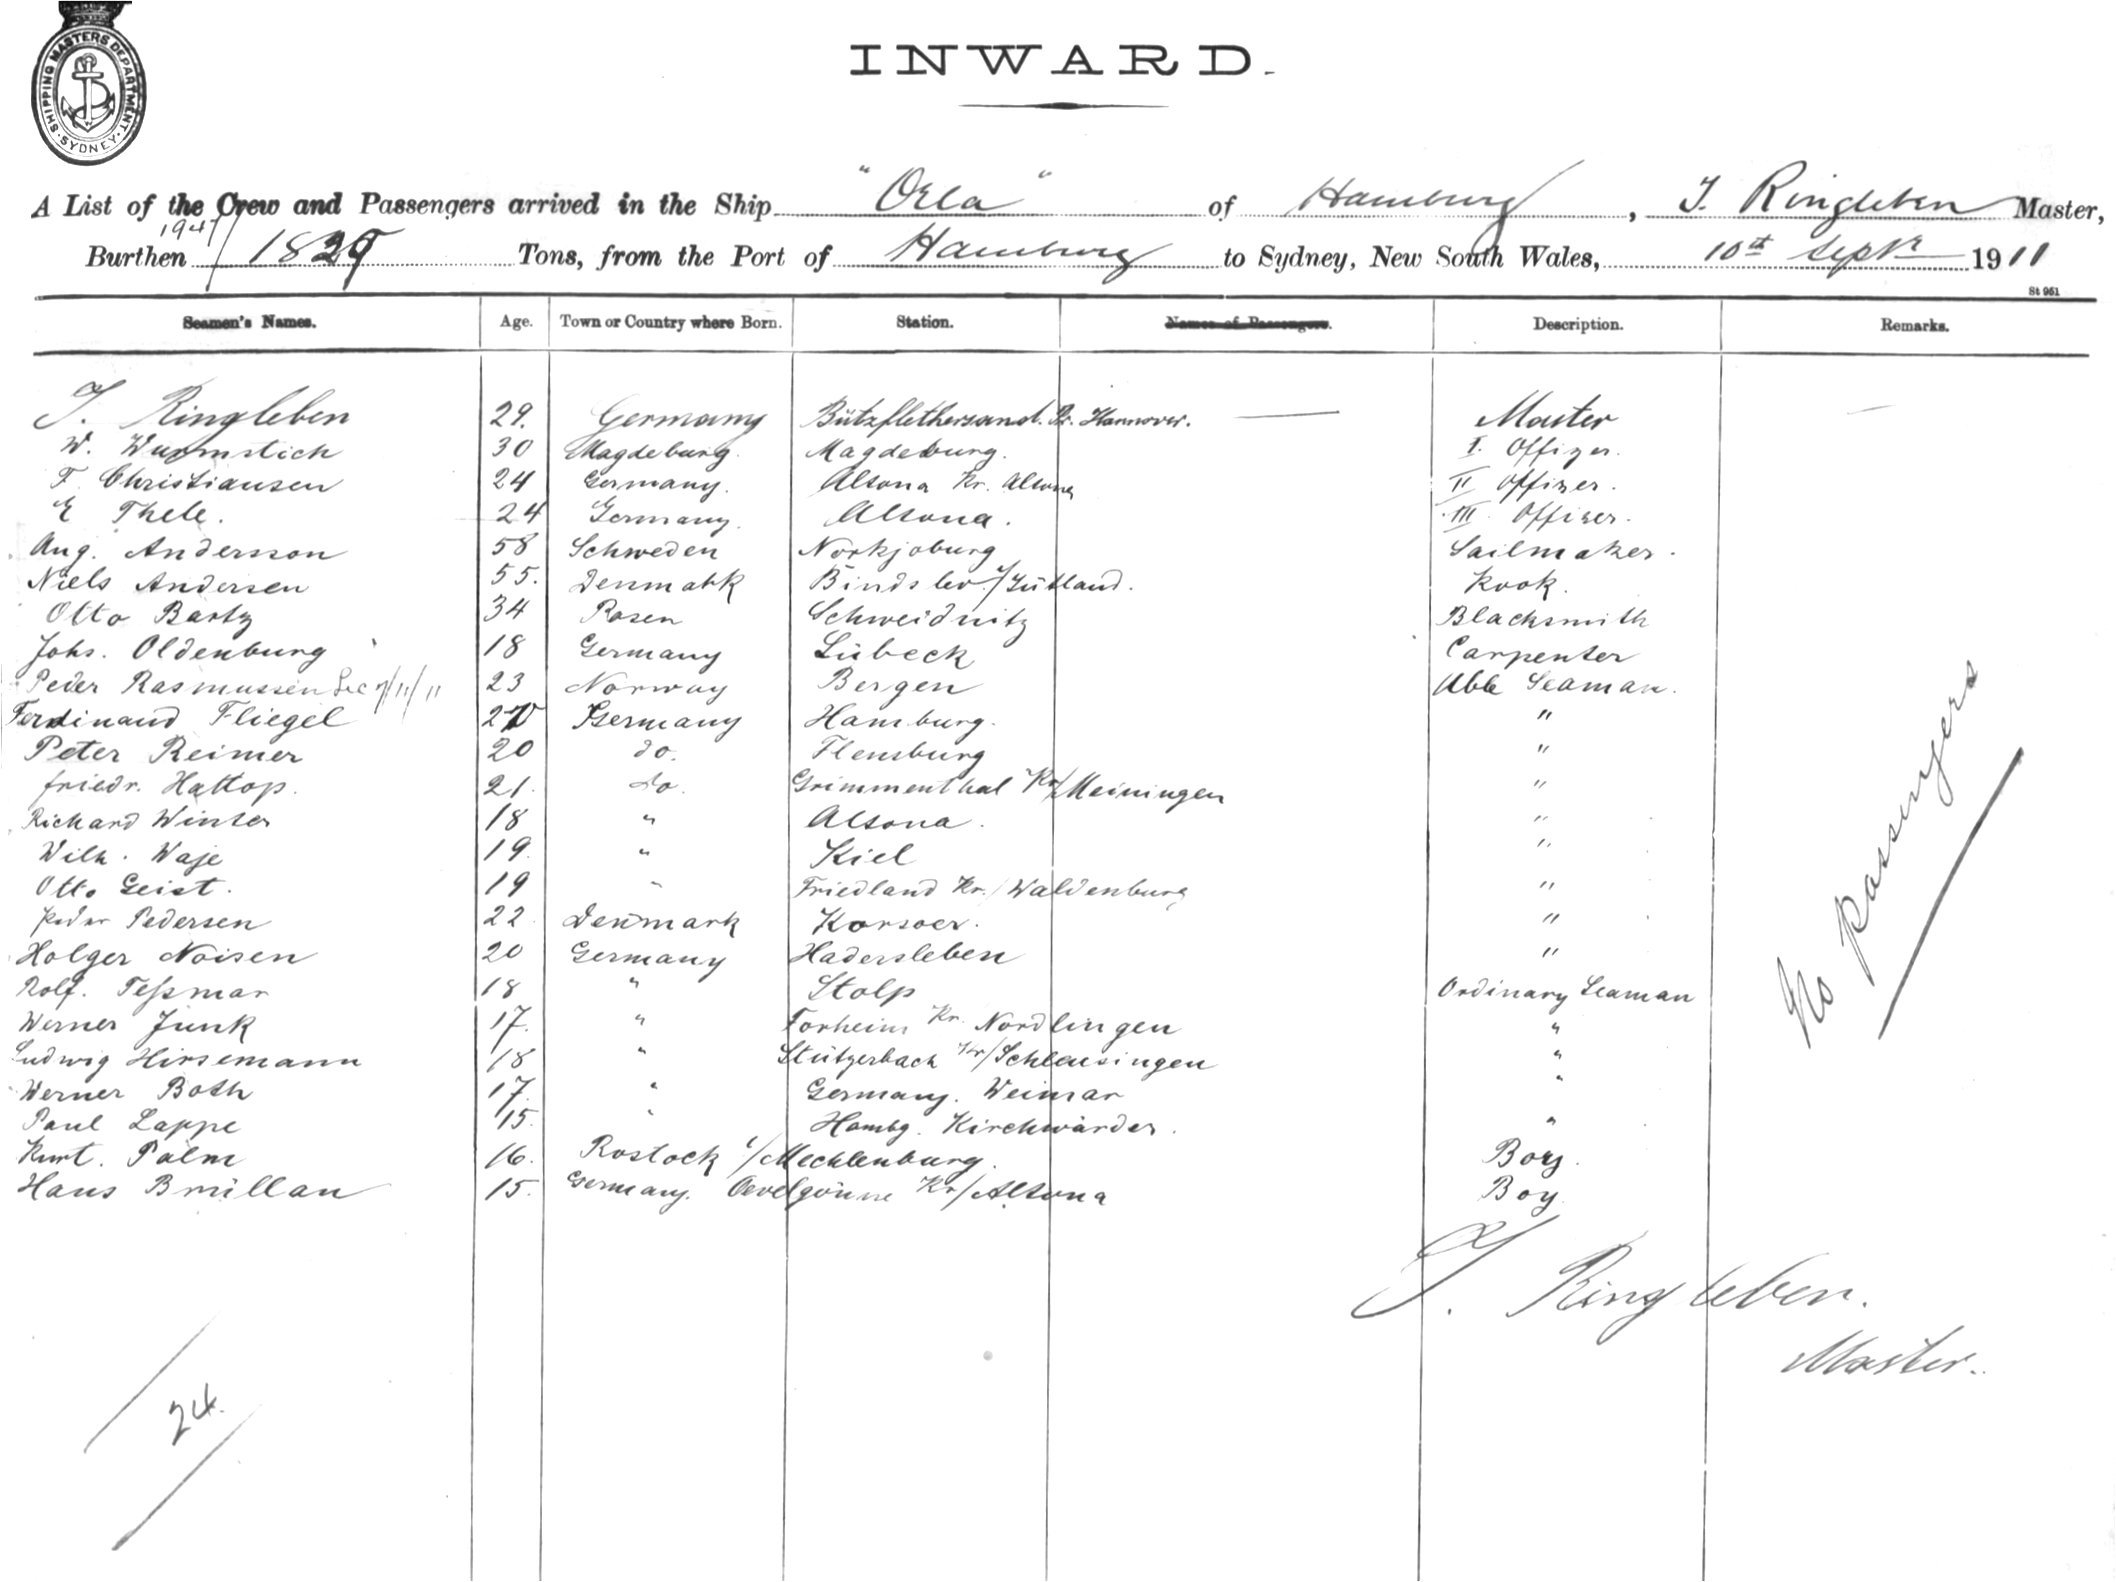 SHIPPING MASTERS DEPARTMENT · SYDNEY ·
INWARD.
A List of the Crew and Passengers arrived in the Ship "Orla" of Hamburg, J. Ringleben Master,
1947
Burthen 1829 Tons, from the Port of Hamburg to Sydney, New South Wales, 10th Septr 1911
St 951
Seamen's Names. Age. Town or Country where Born. Station. Names of Passengers. Description. Remarks.
J. Ringleben 29. Germany Bützflethersand. Pr. Hannover. — Master —
W. Wurmstich 30 Magdeburg. Magdeburg. I. Offizer.
F. Christiansen 24 Germany. Altona Kr. Altona II Offizer.
E Thele. 24 Germany. Altona. III. Offizer.
Aug. Andersson 58 Schweden Norkjoburg Sailmaker.
Niels Andersen 55. Denmark Bindslev. / Jütland. Kook.
Otto Bartz 34 Posen Schweidnitz Blacksmith
Johs. Oldenburg 18 Germany Lübeck Carpenter
Peder Rasmussen 7/11/11 23 Norway Bergen Able Seaman.
Ferdinand Fliegel 27 Germany Hamburg. "
Peter Reimer 20 do. Flensburg "
Friedr. Hattop. 21. do. Grimmenthal Kr/Meiningen "
Richard Winter 18 " Altona. "
Wilh. Waje 19. " Kiel "
Otto Geist. 19 " Friedland Kr./Waldenburg "
Peder Pedersen 22 Denmark Korsoer. "
Holger Noisen 20 Germany Hadersleben "
Rolf. Teßmar 18 " Stolp Ordinary Seaman
Werner Junk 17. " Forheim Kr. Nordlingen "
Ludwig Hirsemann 18 " Stützerbach Kr/Schleusingen "
Werner Both 17. " Germany. Weimar "
Paul Lappe 15. " Hambg. Kirchwärder. "
Kurt. Palm 16. Rostock i/Mecklenburg. Boy.
Hans Brüllau 15. Germany. Oevelgönne Kr/Altona Boy
No Passengers
J. Ringleben.
Master.
24.